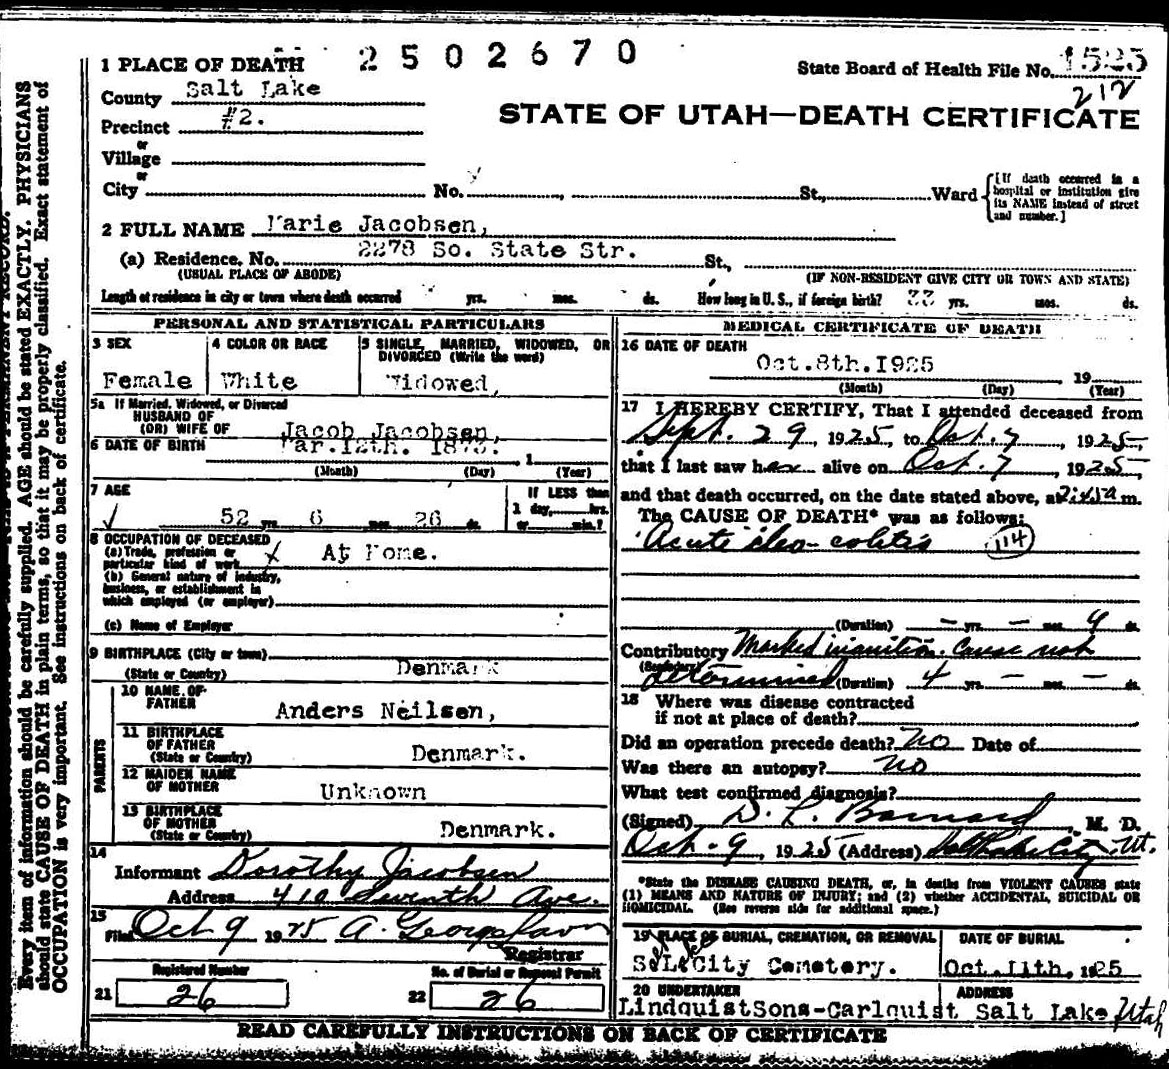 2 5 0 2 6 7 0
1 PLACE OF DEATH
State Board of Health File No. 1525
212
County Salt Lake
STATE OF UTAH—DEATH CERTIFICATE
Precinct #2.
or
Village
or
City No. St., Ward
[If death occurred in a
hospital or institution give
its NAME instead of street
and number.]
2 FULL NAME Marie Jacobsen,
(a) Residence, No. 2278 So. State Str. St.,
(USUAL PLACE OF ABODE) (IF NON-RESIDENT GIVE CITY OR TOWN AND STATE)
Length of residence in city or town where death occurred yrs. mos. ds. How long in U. S., if foreign birth? 33 yrs. mos. ds.
PERSONAL AND STATISTICAL PARTICULARS
3 SEX
Female
4 COLOR OR RACE
White
5 SINGLE, MARRIED, WIDOWED, OR
DIVORCED (Write the word)
Widowed,
5a If Married, Widowed, or Divorced
HUSBAND OF
(OR) WIFE OF Jacob Jacobsen,
6 DATE OF BIRTH Mar.12th. 1873. , 1
(Month) (Day) (Year)
7 AGE
52 yrs. 6 mos. 26 ds.
IF LESS than
1 day, hrs.
or min.?
8 OCCUPATION OF DECEASED
(a) Trade, profession or
particular kind of work At Home.
(b) General nature of industry,
business, or establishment in
which employed (or employer)
(c) Name of Employer
9 BIRTHPLACE (City or town)
(State or Country) Denmark
PARENTS
10 NAME OF
FATHER Anders Neilsen,
11 BIRTHPLACE
OF FATHER
(State or Country) Denmark.
12 MAIDEN NAME
OF MOTHER Unknown
13 BIRTHPLACE
OF MOTHER
(State or Country) Denmark.
14
Informant Dorothy Jacobsen
Address 410 Seventh Ave.
15
Filed Oct 9 1925 A. George
Registrar
Registered Number
21 26
No. of Burial or Removal Permit
22 26
MEDICAL CERTIFICATE OF DEATH
16 DATE OF DEATH
Oct.8th.1925 , 19
(Month) (Day) (Year)
17 I HEREBY CERTIFY, That I attended deceased from
Sept. 29, 1925, to Oct. 7, 1925,
that I last saw her alive on Oct. 7, 1925,
and that death occurred, on the date stated above, at 2:45a m.
The CAUSE OF DEATH* was as follows:
Acute ileo-colitis 114
(Duration) – yrs. – mos. 9 ds.
Contributory Marked inanition. Cause not
(Secondary)
determined (Duration) 4 yrs. – mos. – ds.
18 Where was disease contracted
if not at place of death?
Did an operation precede death? No Date of
Was there an autopsy? No
What test confirmed diagnosis?
(Signed) D. L. Barnard, M. D.
Oct. 9, 1925 (Address) Salt Lake City, Ut.
*State the DISEASE CAUSING DEATH, or, in deaths from VIOLENT CAUSES state
(1) MEANS AND NATURE OF INJURY; and (2) whether ACCIDENTAL, SUICIDAL OR
HOMICIDAL. (See reverse side for additional space.)
19 PLACE OF BURIAL, CREMATION, OR REMOVAL
Salt Lake
S.L.City Cemetery.
DATE OF BURIAL
Oct.11th, 1925
20 UNDERTAKER
LindquistSons-Carlquist
ADDRESS
Salt Lake Utah
READ CAREFULLY INSTRUCTIONS ON BACK OF CERTIFICATE
PERMANENT RECORD.
Every item of information should be carefully supplied. AGE should be stated EXACTLY. PHYSICIANS
should state CAUSE OF DEATH in plain terms, so that it may be properly classified. Exact statement of
OCCUPATION is very important. See instructions on back of certificate.